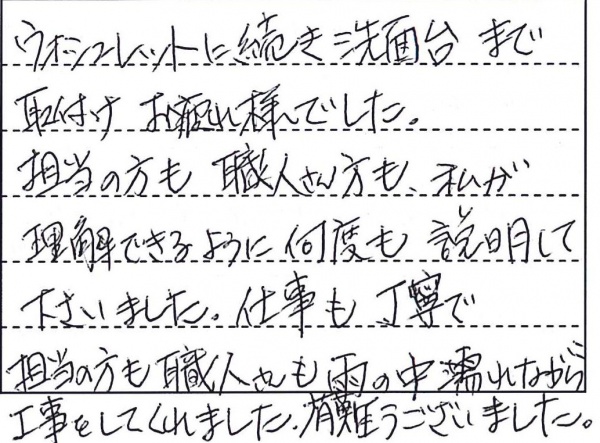 ウォシュレットに続き洗面台まで
取付け お疲れ様でした。
担当の方も 職人さん方も、私が
理解できるように何度も 説明して
下さいました。仕事も 丁寧で
担当の方も職人さんも雨の中濡れながら
工事をしてくれました。有難うございました。